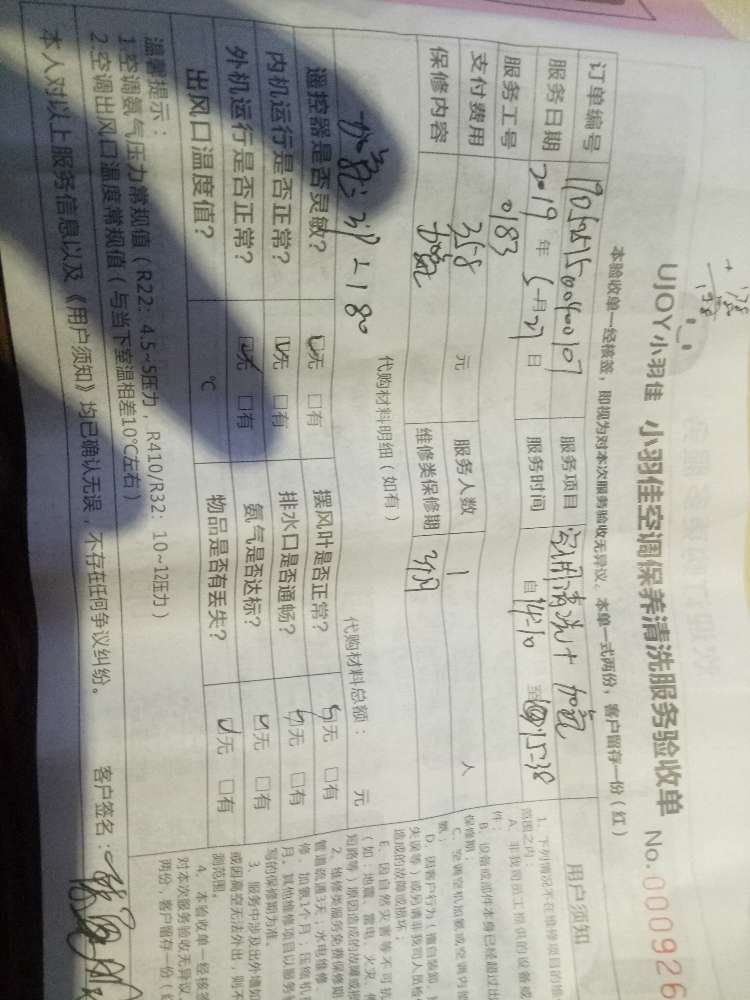 + 178
UJOY小羽佳 小羽佳空调保养清洗服务验收单 No.0000926
本验收单一经核签,即视为对本次服务验收无异议。本单一式两份,客户留存一份(红)
订单编号 服务项目 空调清洗+加氟
服务日期 2019年5月27日 服务时间 自14:10 至 15:38
服务工号 0183
支付费用 358 元 服务人数 1 人
保修内容 加氟 维修类保修期
代购材料明细(如有) 代购材料总额: 元
遥控器是否灵敏? 无 □有 摆风叶是否正常? 无 □有
内机运行是否正常? 无 □有 排水口是否通畅? 无 □有
外机运行是否正常? 无 □有 氨气是否达标? 无 □有
出风口温度值? ℃ 物品是否有丢失? 无 □有
温馨提示:
1.空调氨气压力常规值(R22:4.5~5压力,R410/R32:10~12压力)
2.空调出风口温度常规值(与当下室温相差10℃左右)
本人对以上服务信息以及《用户须知》均已确认无误,不存在任何争议纠纷。 客户签名:
用户须知
1、下列情况不在维修项目的维
范围之内:
A、非我司员工提供的设备或
件;
B、设备或部件本身已经超过出
保修期;
C、空调空机加氨或空调内管
氨;
D、因客户行为(擅自装卸、
失误等)或另请非我司人员检
造成的故障或损坏;
E、因自然灾害等不可抗
(如:地震、雷电、火灾、
短路等)原因造成的故障或损
2、维修类服务免费保修期
管道疏通3天;水电维修
修,加氨1个月;压缩机
月。其他维修项目以服务
写的保修期为准。
3、服务中涉及出外墙如
或因高空无法外出,则不
测范围。
4、本验收单一经核签
对本次服务验收无异议。
两份,客户留存一份(红